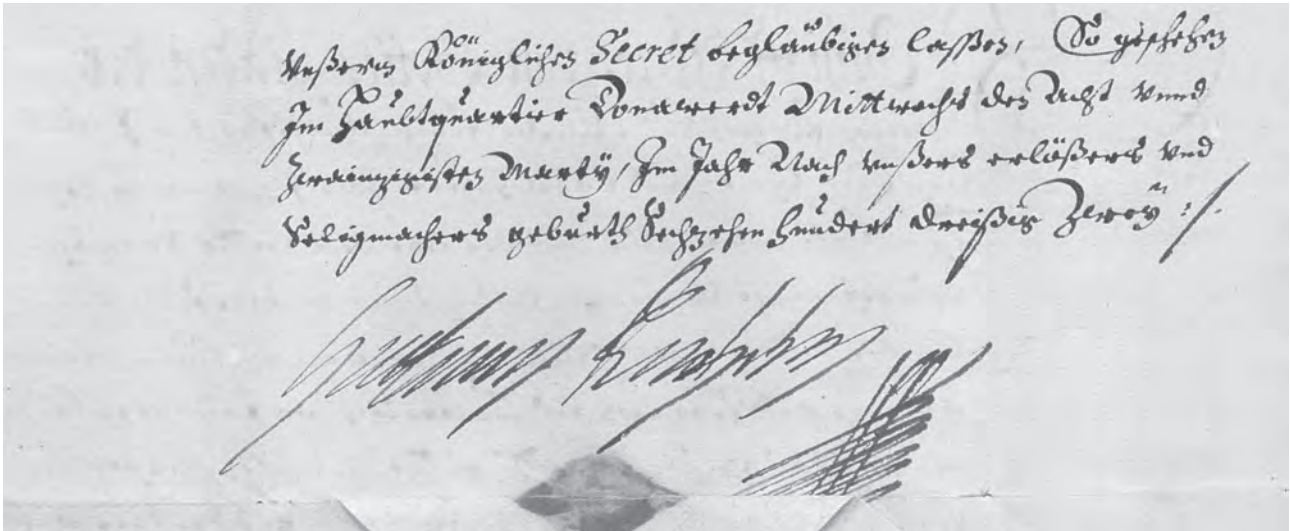 Unßerm Königlichen Secret begläubigen laßen, So geschehen
Im Haubtquartier Donawerdt Mittwochs den Acht vnnd
Zwainzigisten Marty, Im Jahr Nach vnßers erlößers vnd
Seligmachers geburth Sechzehen hundert dreißig Zwey :/.
Gustavus Adolphus